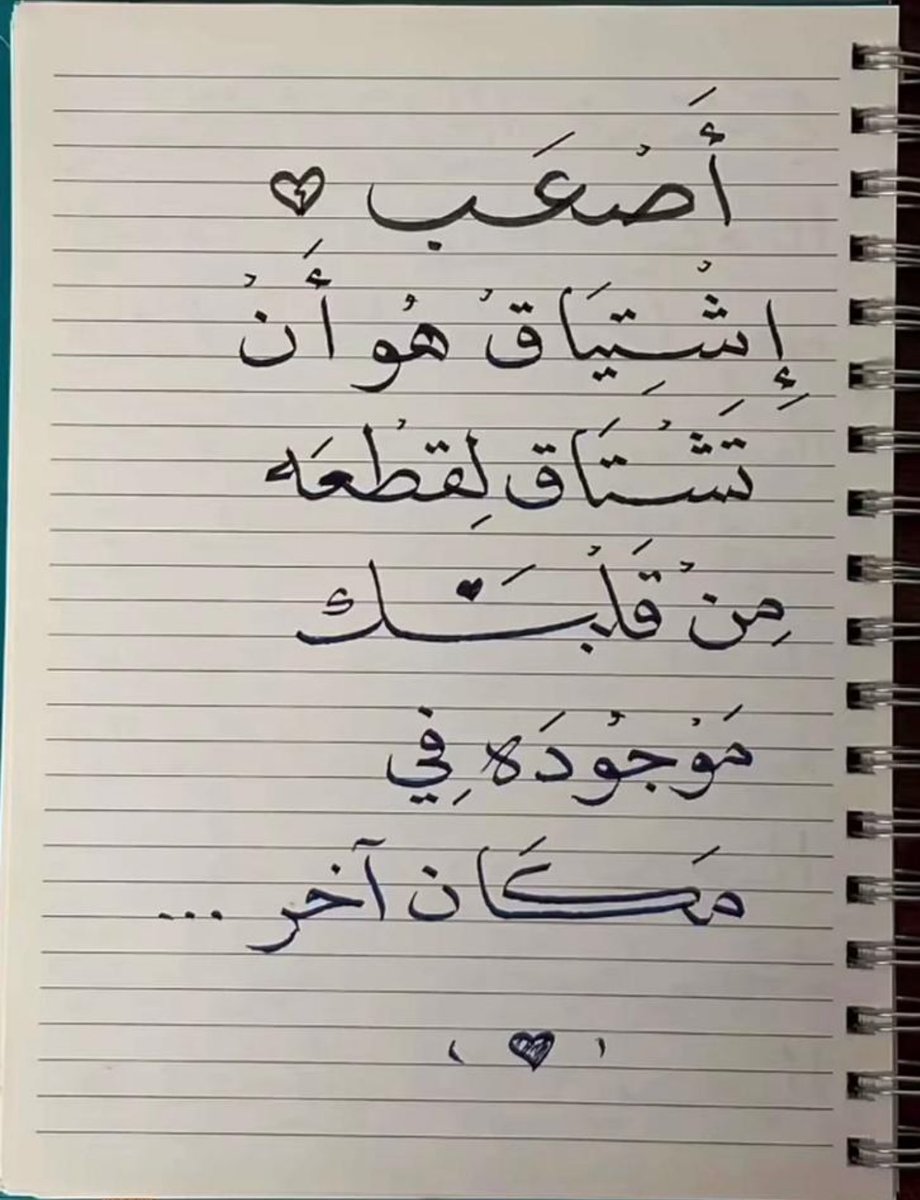 أَصْعَب
إِشْتِيَاقْ هُو أَنْ
تَشْتَاق لِقطْعَه
مِنْ قَلْبَك
مَوْجُودَه فِي
مَكَان آخر ...